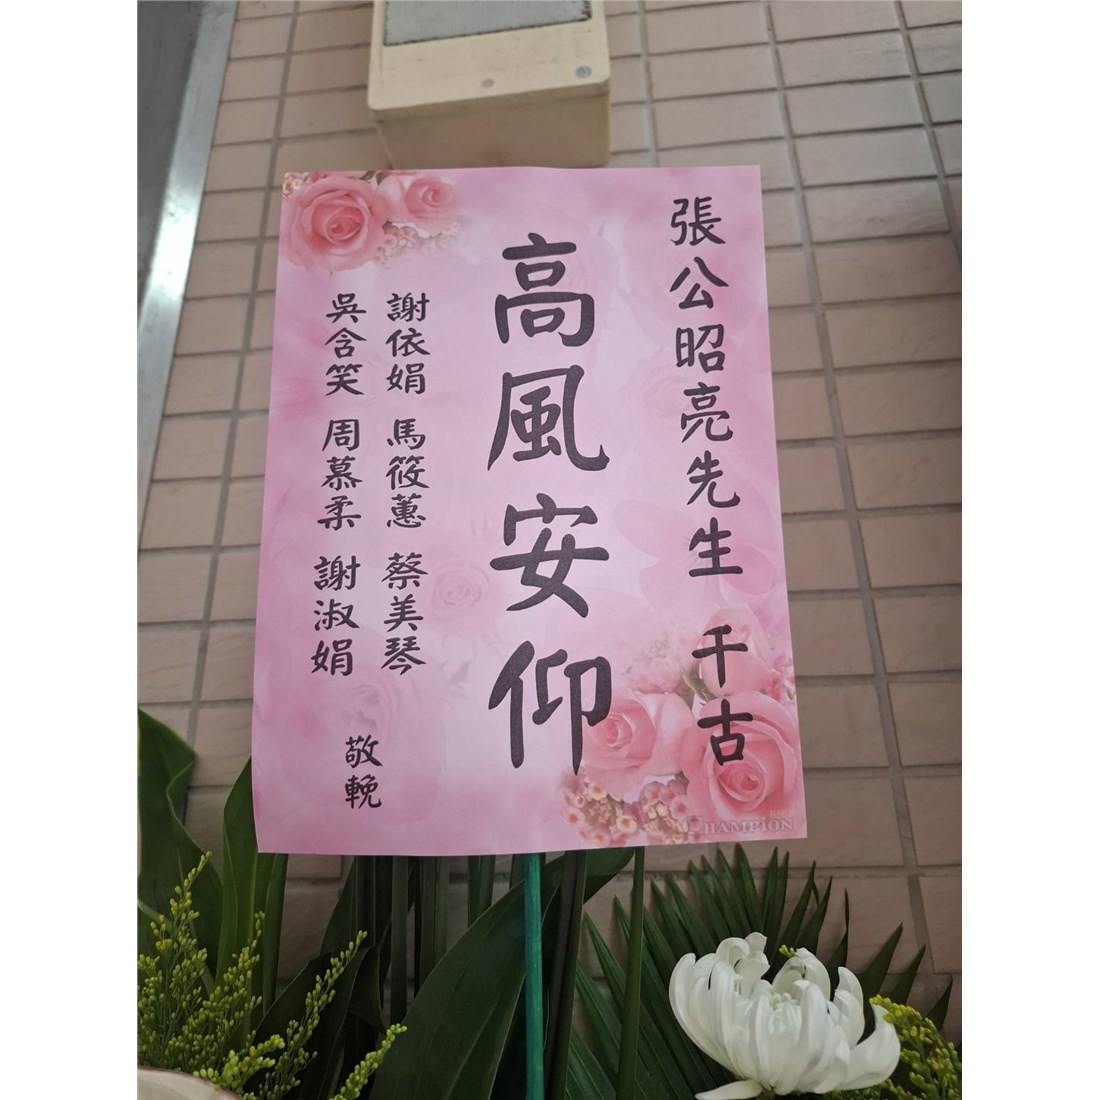 張公昭亮先生 千古
高風安仰
謝依娟 馬筱蕙 蔡美琴
吳含笑 周慕柔 謝淑娟
敬輓
CHAMPION